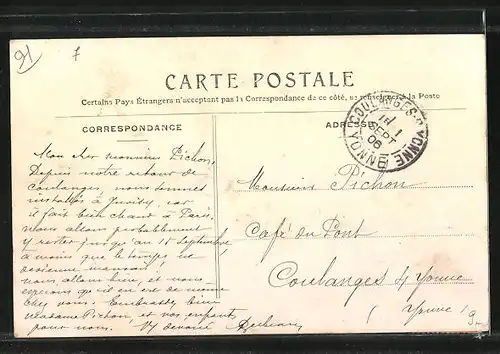 91
7
CARTE POSTALE
Certains Pays Étrangers n'acceptent pas la Correspondance de ce côté, se renseigner à la Poste
CORRESPONDANCE
ADRESSE
COULANGES-S-YONNE
1
SEPT
06
YONNE
Mon cher monsieur Pichon,
Depuis notre retour de
Coulanges, nous sommes
installés à Juvisy, car
il fait bien chaud à Paris.
Nous allons probablement
y rester jusqu'au 15 Septembre
à moins que le temps ne
devienne mauvais,
nous allons bien, et nous
espérons qu'il en est de même
chez vous. Embrassez bien
madame Pichon, et vos enfants
pour nous. Vy dévoué
Monsieur Pichon
Café du Pont
Coulanges s/ Yonne
( Yonne )
9-